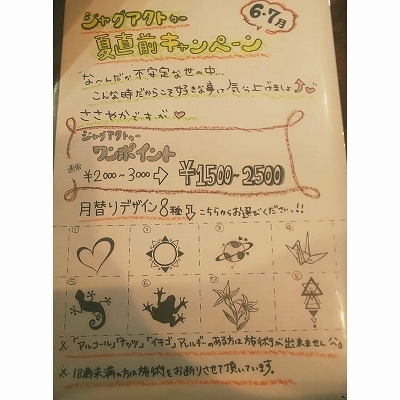 ジャグアタトゥー
6・7月
夏直前キャンペーン
な〜んだか不安定な世の中…
こんな時だからこそ好きな事して気分上げましょ
ささやかですが
ジャグアタトゥー
ワンポイント
通常
¥2000〜3000→ ¥1500〜2500
月替りデザイン8種 こちらからお選びください!!
① ② ③ ④
⑤ ⑥ ⑦ ⑧
※「アルコール」「ナッツ」「イチゴ」アレルギーのある方は施術が出来ません。
※18歳未満の方は施術をお断りさせて頂いています。